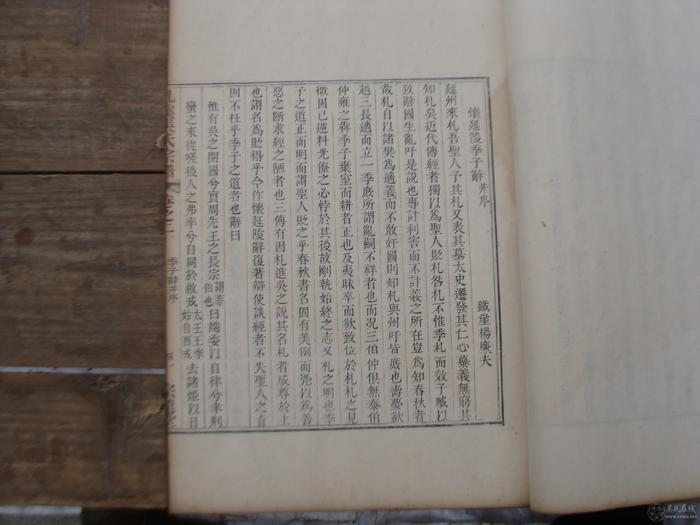 懷延陵季子辭并序
鐵崖楊廉夫
延州來札吾聖人予其札又表其墓太史遷發其仁心慕義無窮其
知札矣近代傳經者獨以為聖人貶札咎札不惟季札而效子臧以
致辭國生亂吁是說也專計利害而不計義之所在豈為知春秋者
故札自以諸樊為適義而不敢奸國則知札與州吁皆庶也壽夢欲
越三長適而立一季庶所謂亂嗣不祥者也而况三伯仲俱無泰伯
仲雍之犇季子棄室而耕者正也及夷昧卒而欲致位於札札之見
微固已逆料光僚之必悖於其後故剛執始終之志又札之明也季
子之道正而明而謂聖人貶之乎春秋書名固有美例而兠以為善
惡之斷求經之陋者也三傳有因札進吳之說其名札者成尊於上
也謂名為貶得乎今作懷延陵辭復著辯使談經者不失聖人之旨
則不枉乎季子之道者也辭曰
惟有吳之開國兮實周先王之長宗謂泰伯也曰端委以自律兮聿荆
蠻之來從嗟後人之弗率兮自同於啟戎去諸姬以日
氏宗譜
卷之二
季子辭并序